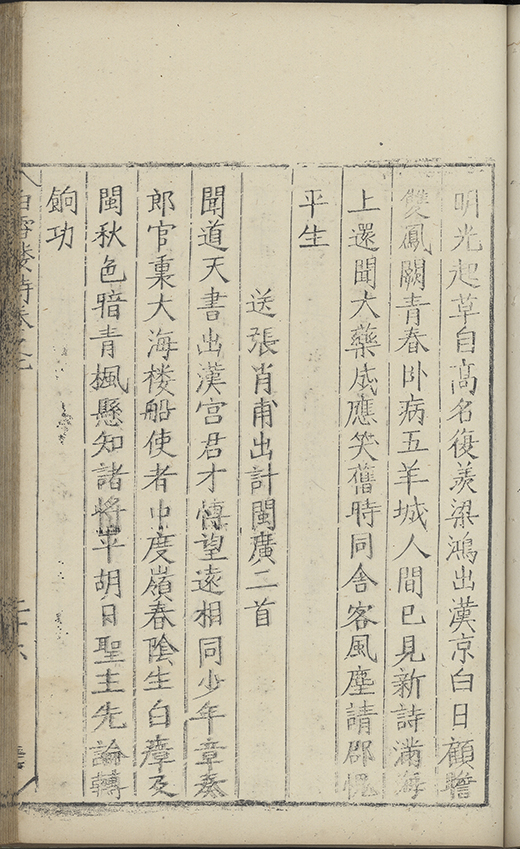 明光起草自高名復羨梁鴻出漢京白日顧瞻
雙鳳闕青春臥病五羊城人間已見新詩滿海
上還聞大藥成應笑舊時同舍客風塵請郡愧
平生
送張肖甫出計閩廣二首
聞道天書出漢宮君才慷望遠相同少年章奏
郎官稟大海楼船使者中度嶺春陰生白瘴及
閩秋色暗青楓懸知諸將平胡日聖主先論轉
餉功
白雪楼詩卷之七